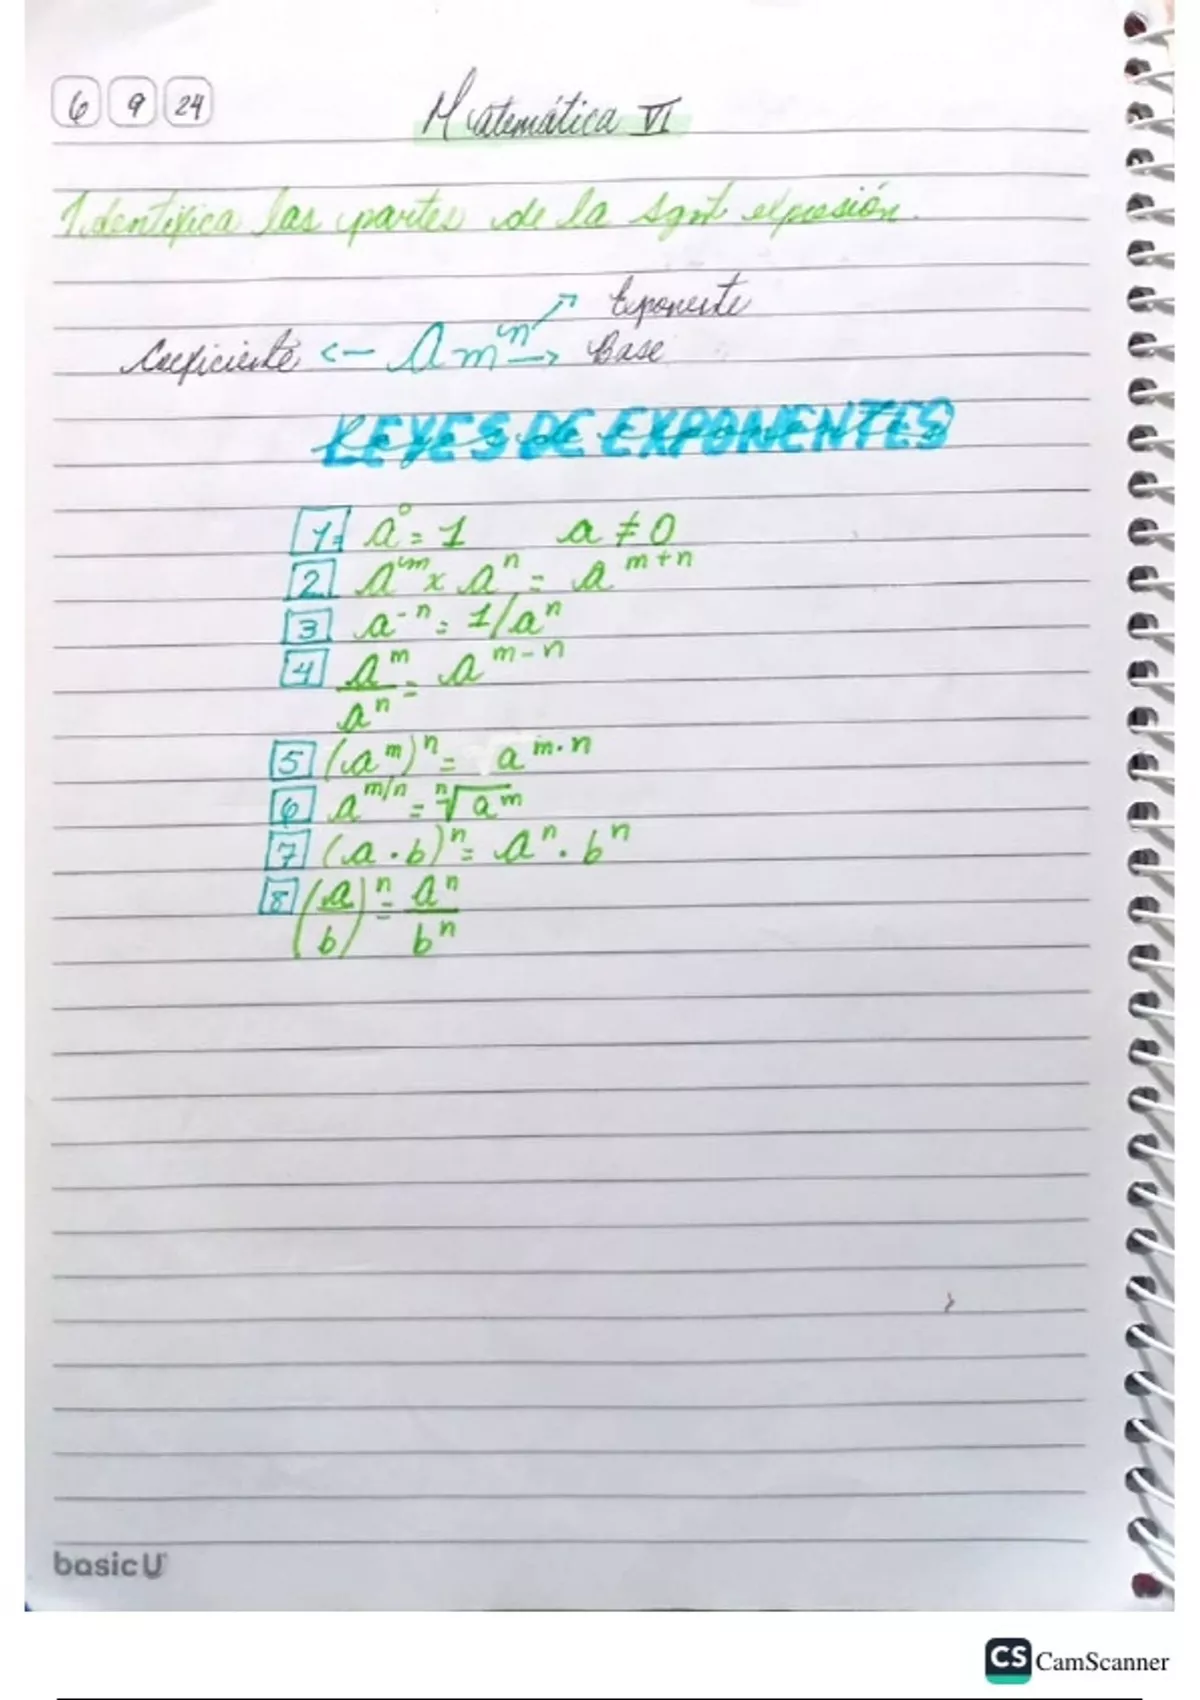 6 9 24
Matemática VI
Identifica las partes de la sgnt expresión.
Exponente
Coeficiente <- Amⁿ -> Base
LEYES DE EXPONENTES
1= a⁰ = 1 a ≠ 0
2 aᵐ x aⁿ = aᵐ⁺ⁿ
3 a⁻ⁿ = 1/aⁿ
4 aᵐ/aⁿ = aᵐ⁻ⁿ
5 (aᵐ)ⁿ = a^m·n
6 a^m/n = ⁿ√aᵐ
7 (a · b)ⁿ = aⁿ · bⁿ
8 (a/b)ⁿ = aⁿ/bⁿ
basicU
CS CamScanner